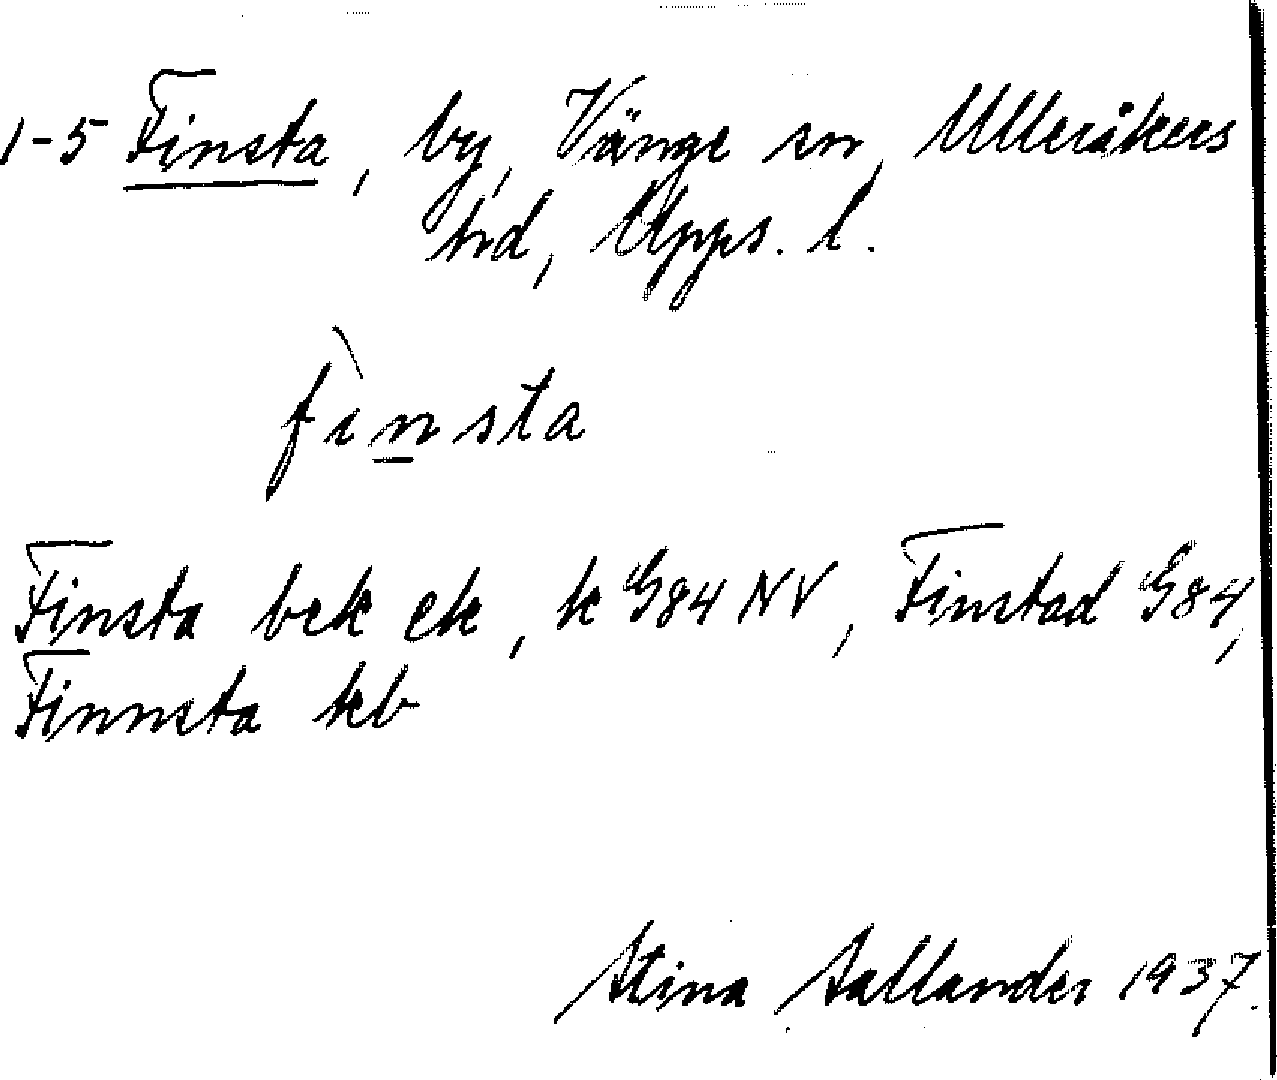 1-5 Finsta, by, Vänge sn, Ulleråkers
hd, Upps. l.
fìnsta
Finsta bek ek, k G84 NV, Finstad G84,
Finnsta kb
Stina Sallander 1937.